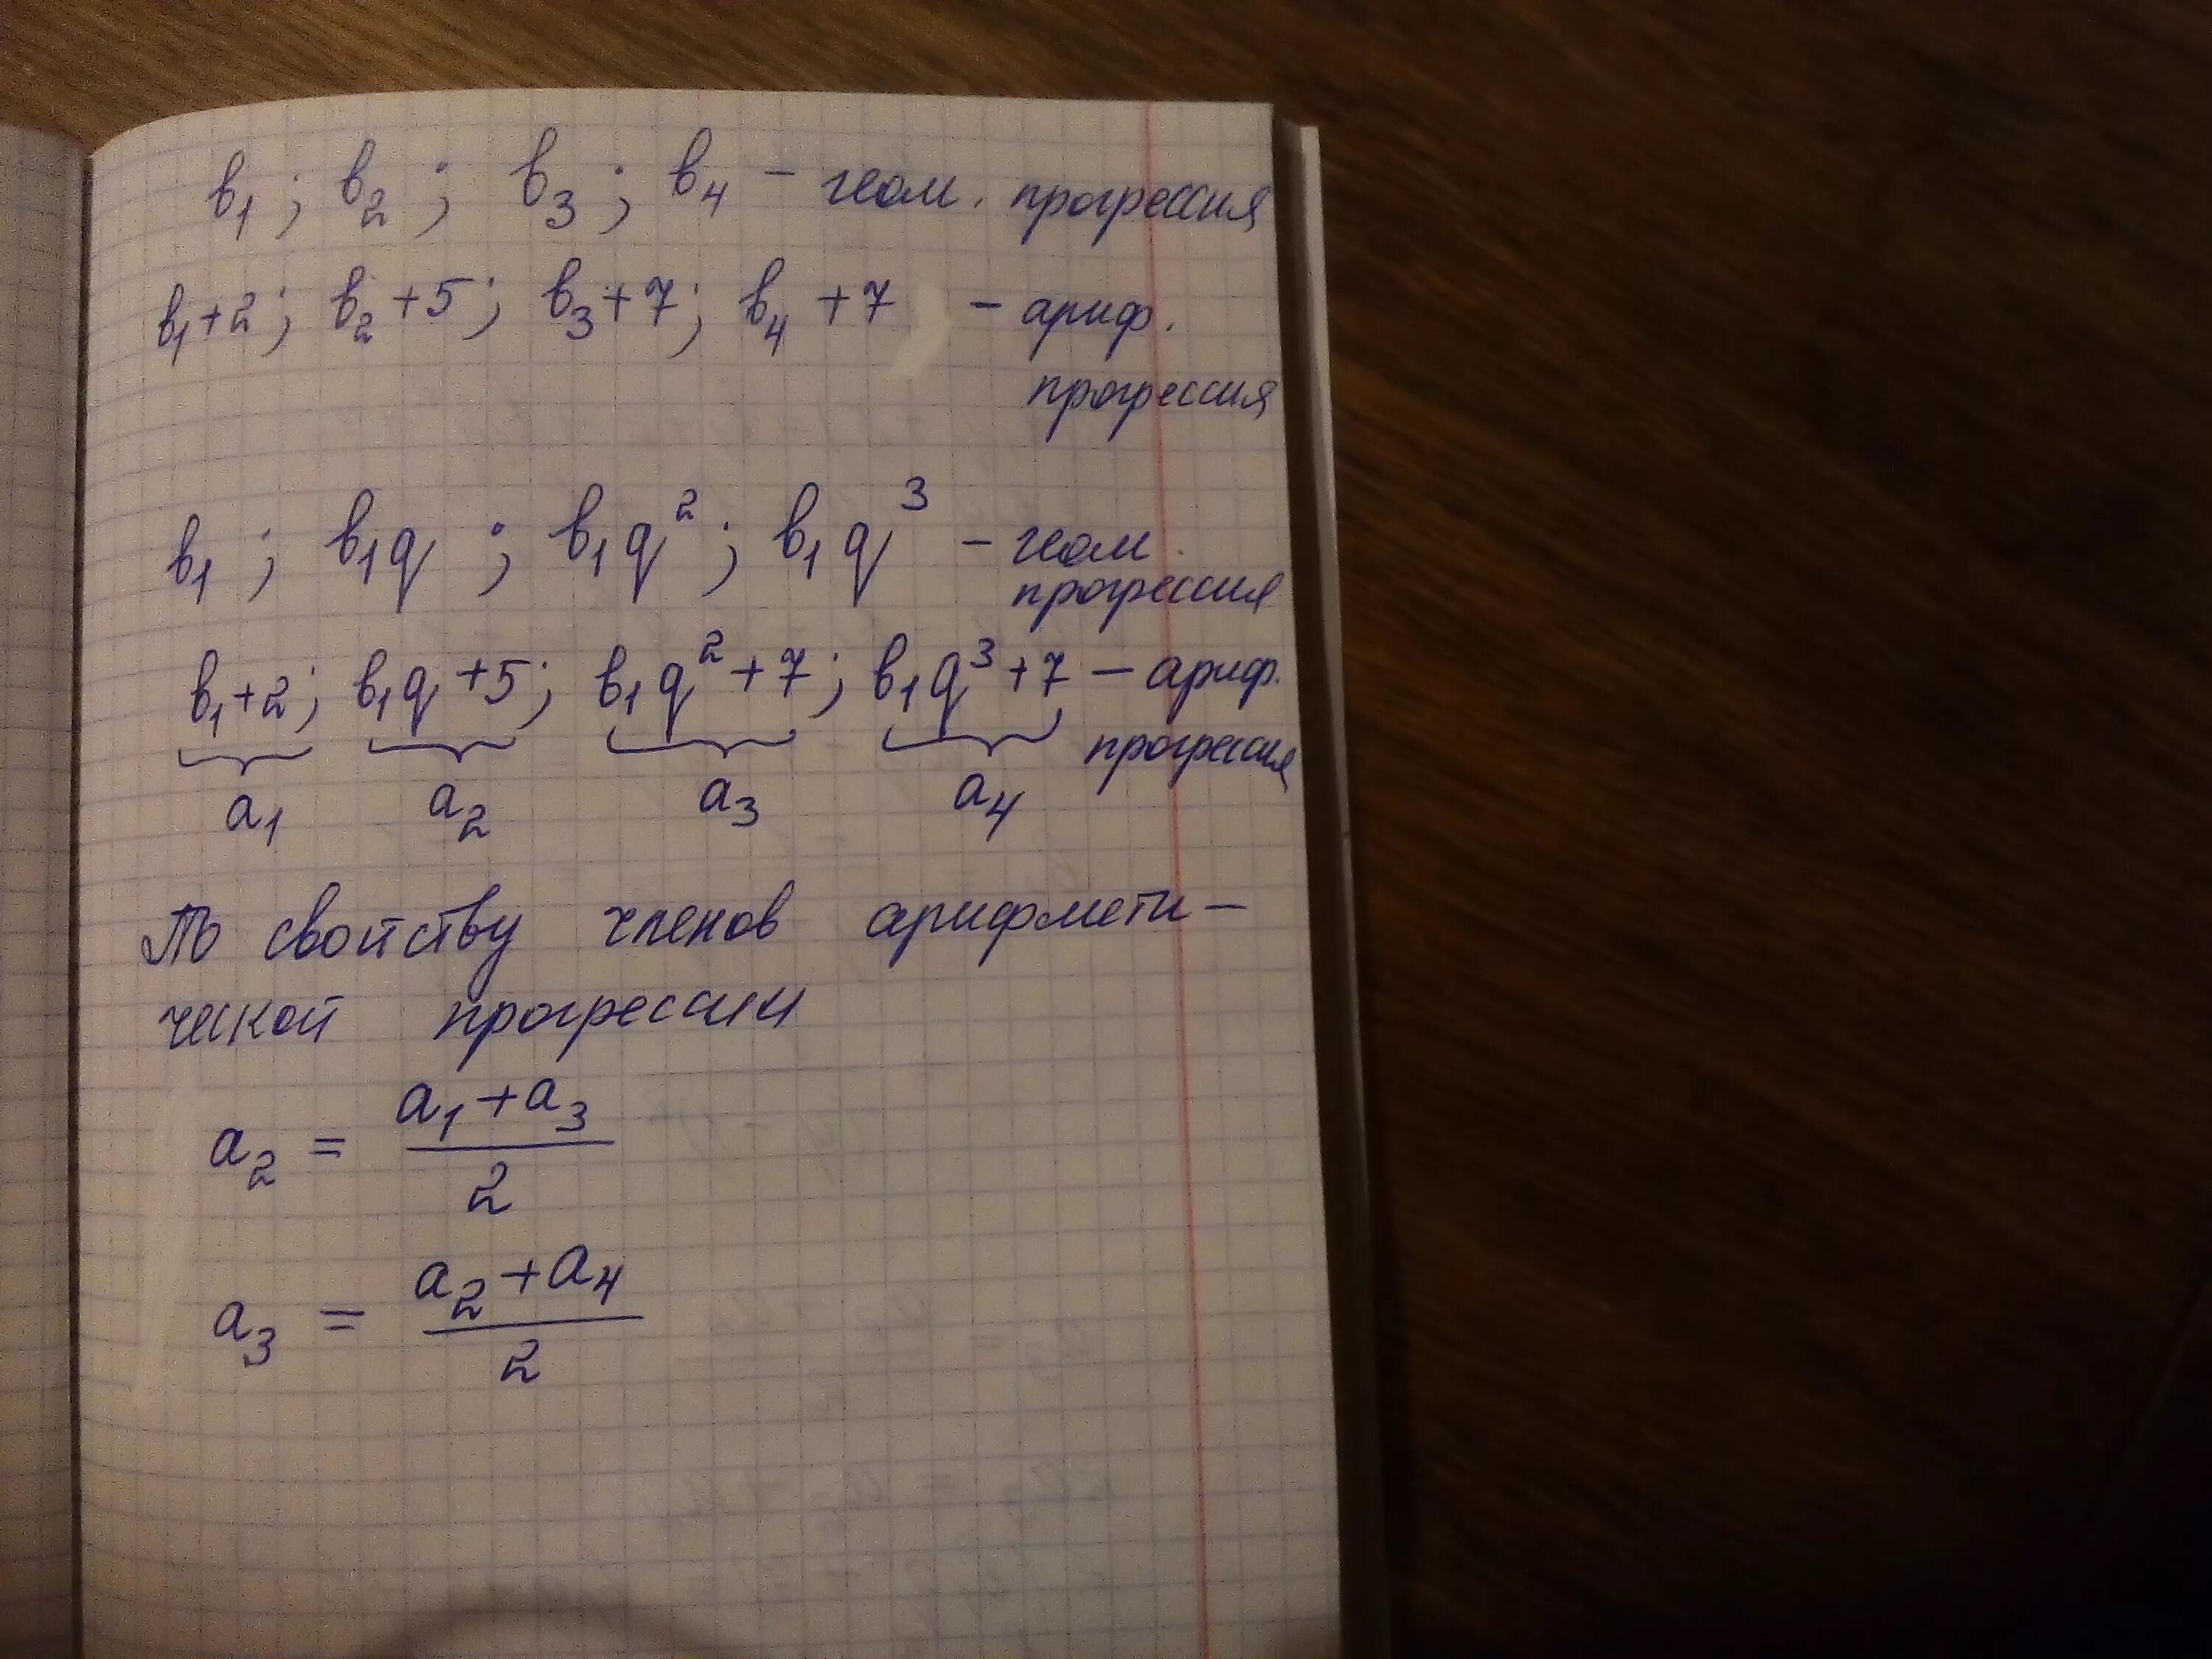 b₁; b₂; b₃; b₄ - геом. прогрессия
b₁+2; b₂+5; b₃+7; b₄+7 - ариф.
прогрессия
b₁; b₁q; b₁q²; b₁q³ - геом.
прогрессия
b₁+2; b₁q+5; b₁q²+7; b₁q³+7 - ариф.
прогрессия
a₁ a₂ a₃ a₄
По свойству членов арифмети-
ческой прогрессии
a₂ = (a₁+a₃)/2
a₃ = (a₂+a₄)/2